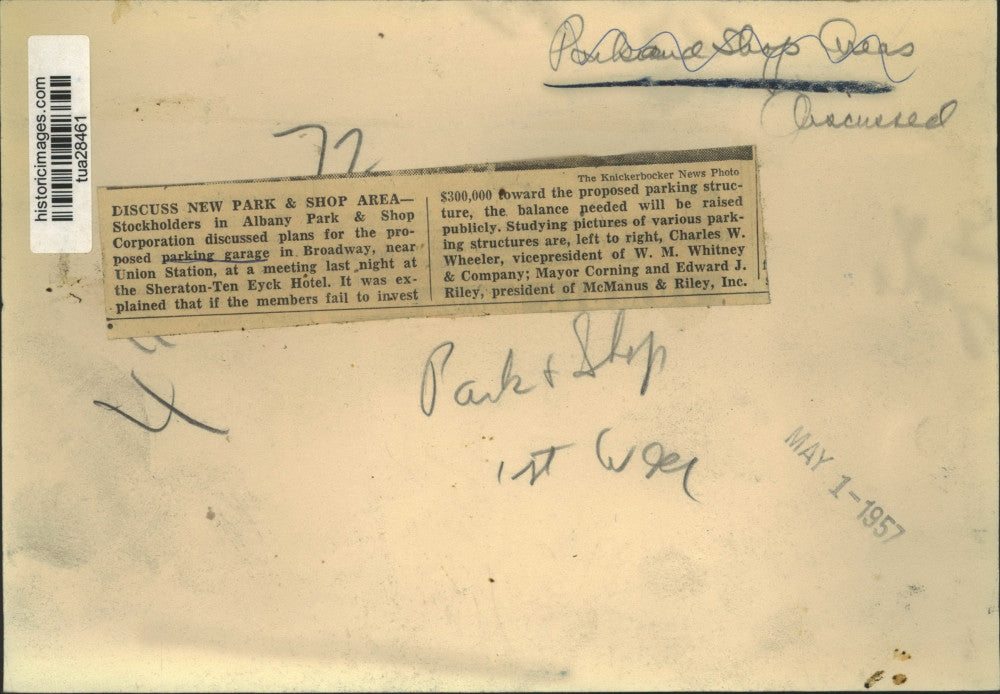 historicimages.com
tua28461
Park and Shop Areas
Discussed
72
The Knickerbocker News Photo
DISCUSS NEW PARK & SHOP AREA—
Stockholders in Albany Park & Shop
Corporation discussed plans for the pro-
posed parking garage in Broadway, near
Union Station, at a meeting last night at
the Sheraton-Ten Eyck Hotel. It was ex-
plained that if the members fail to invest
$300,000 toward the proposed parking struc-
ture, the balance needed will be raised
publicly. Studying pictures of various park-
ing structures are, left to right, Charles W.
Wheeler, vicepresident of W. M. Whitney
& Company; Mayor Corning and Edward J.
Riley, president of McManus & Riley, Inc.
Park + Shop
1st
MAY 1-1957